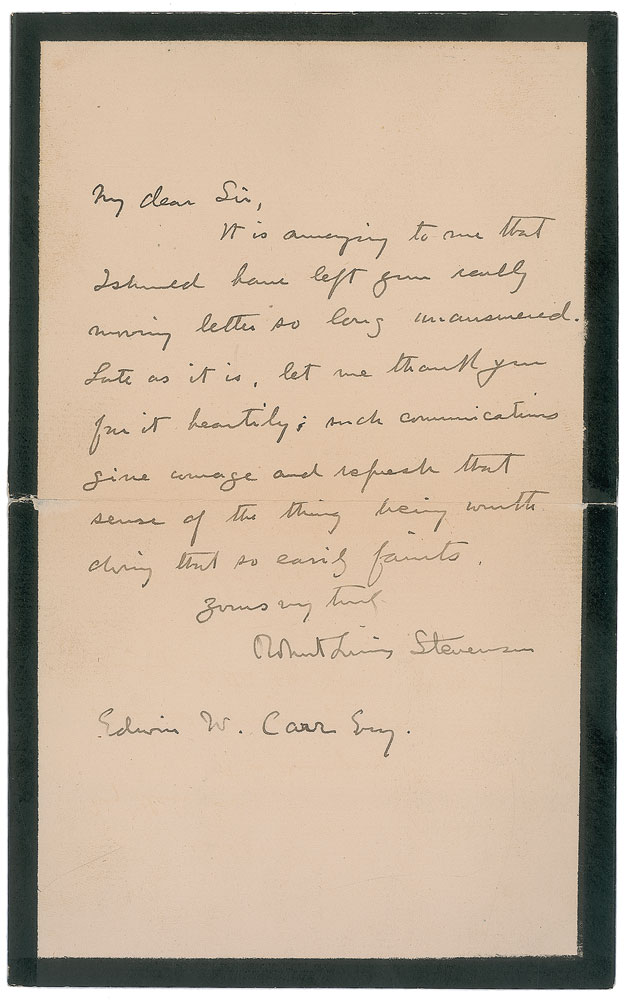 My dear Sir,
It is amazing to me that
I should have left your really
moving letter so long unanswered.
Late as it is, let me thank you
for it heartily; such communications
give courage and refresh that
sense of the thing being worth
doing that so easily faints.
Yours very truly
Robert Louis Stevenson
Edwin W. Carr Esq.